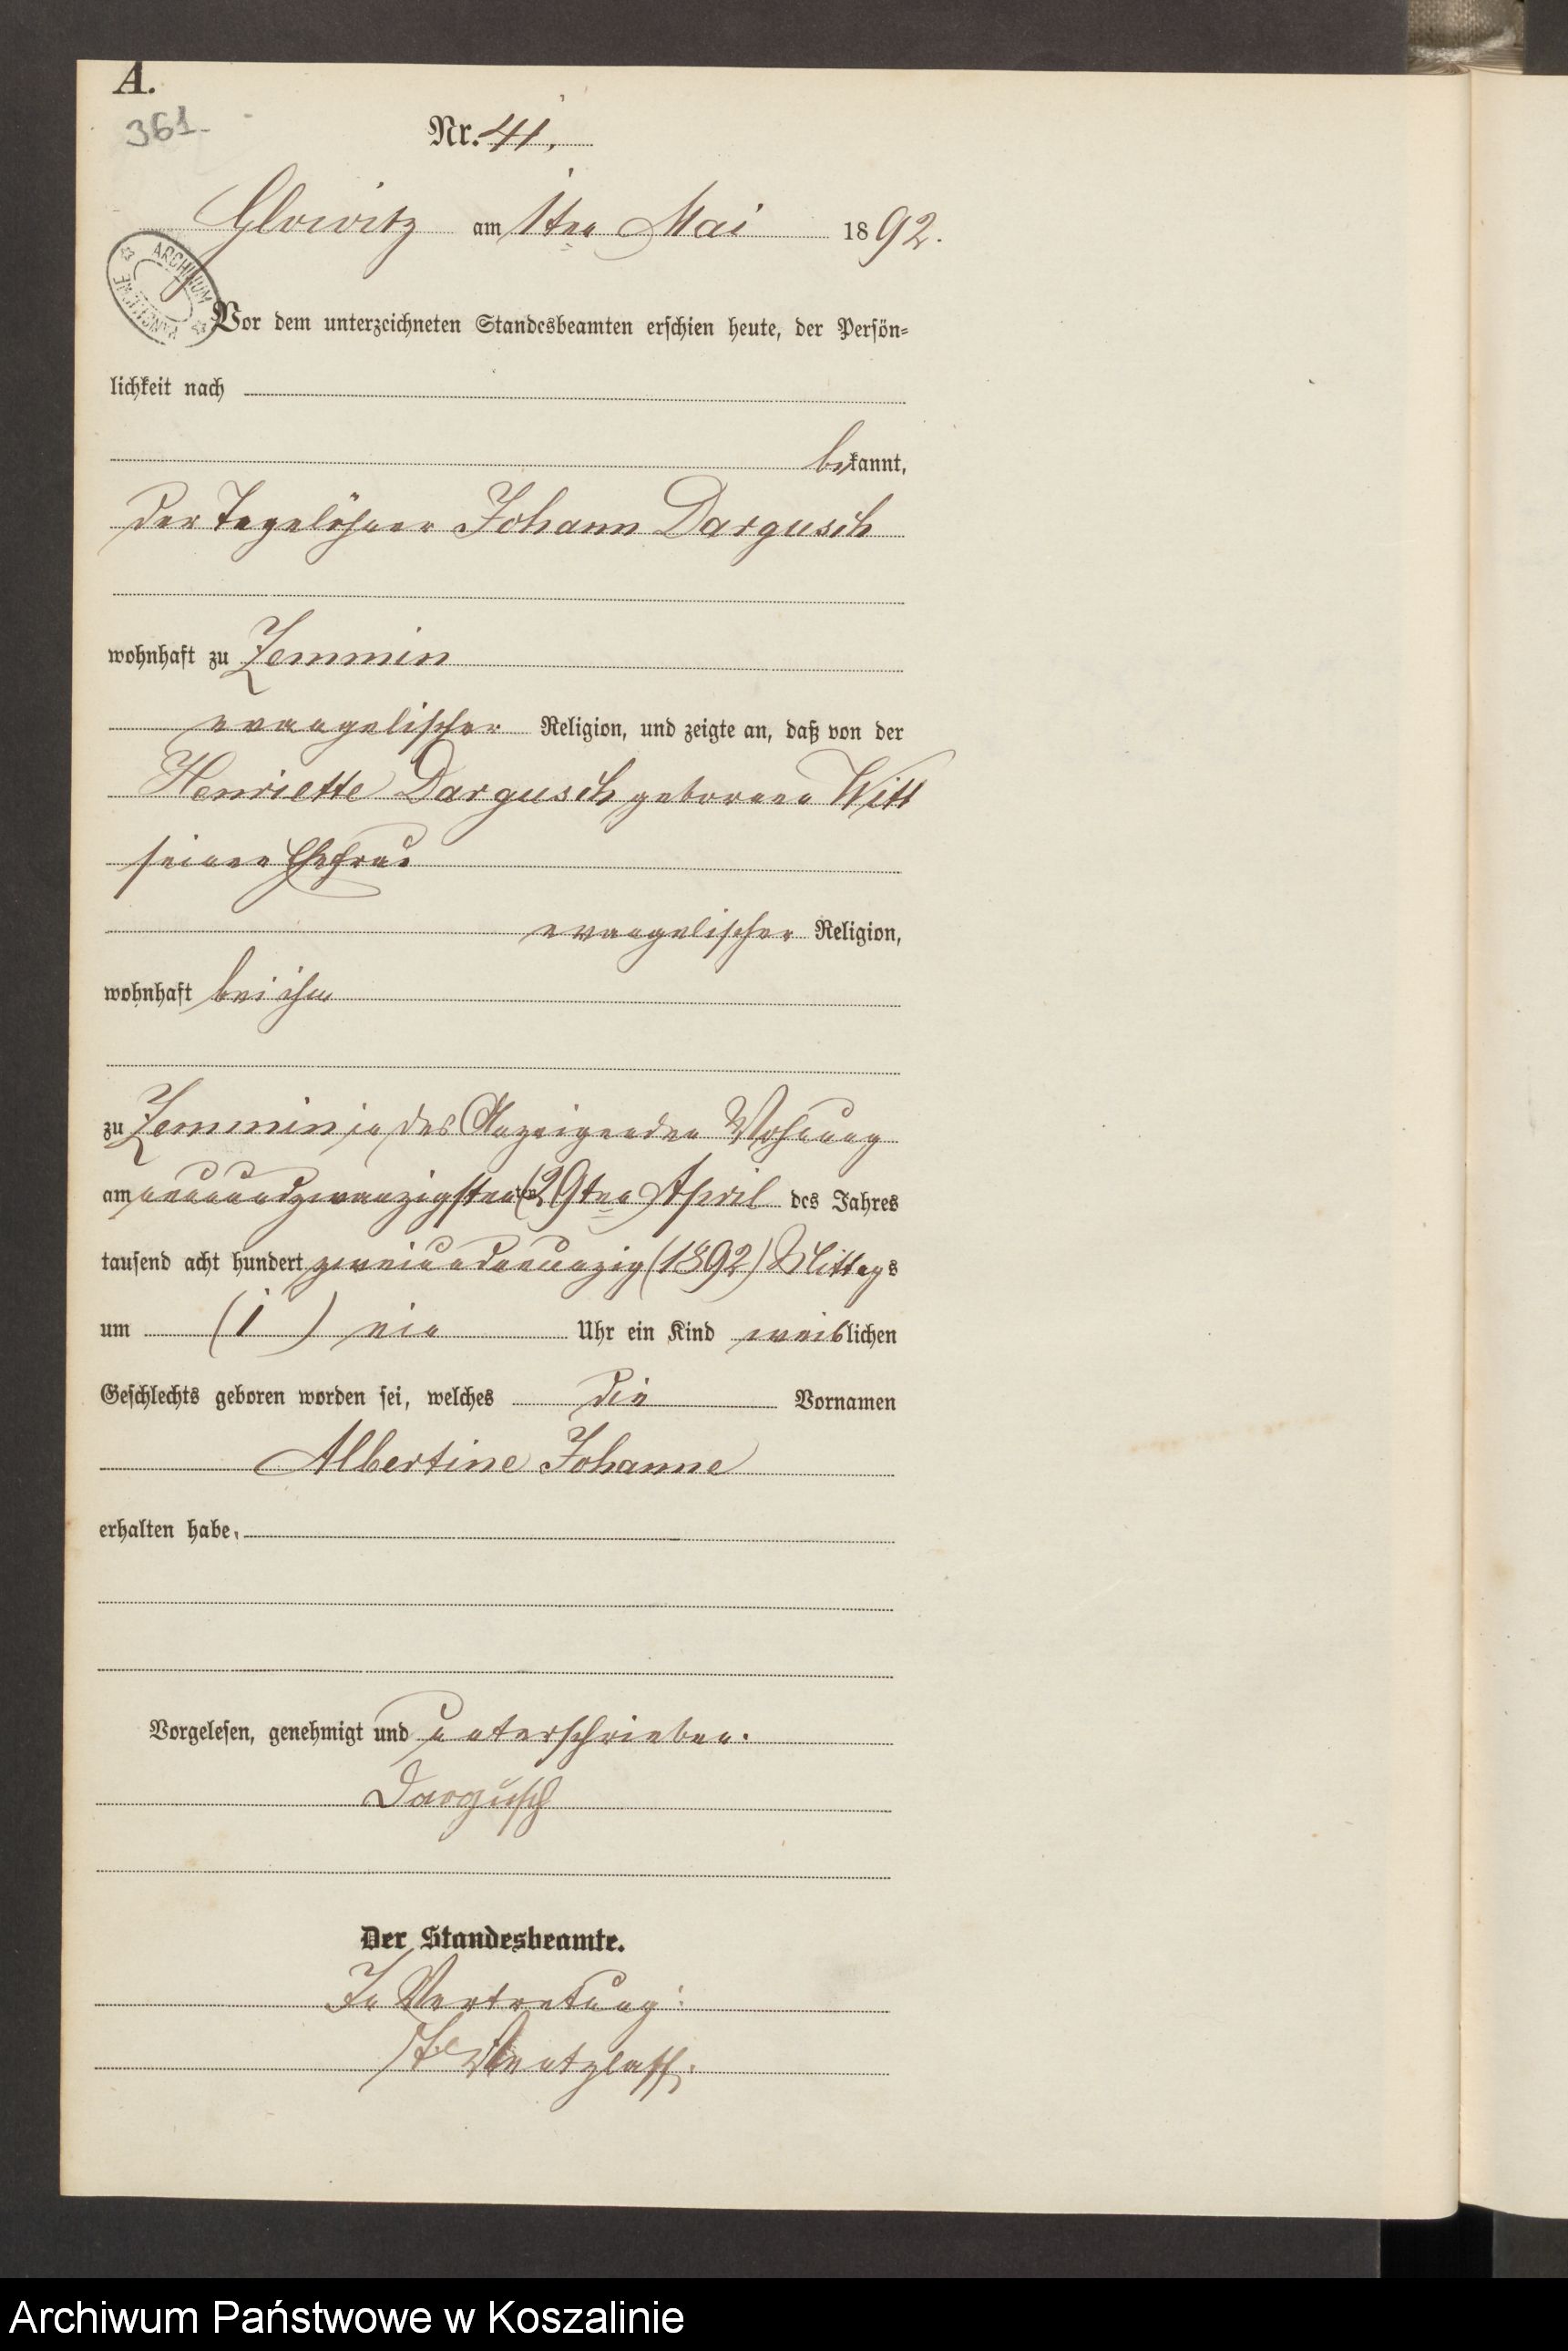 A.
361.
Nr. 41.
Glowitz am 1ten Mai 1892.
ARCHIWUM
Vor dem unterzeichneten Standesbeamten erschien heute, der Persön-
lichkeit nach
bekannt,
der Tagelöhner Johann Dargusch
wohnhaft zu Zemmin
evangelischer Religion, und zeigte an, daß von der
Henriette Dargusch geborene Witt
seiner Ehefrau
evangelischer Religion,
wohnhaft bei ihm
zu Zemmin in des Anzeigenden Wohnung
am neunundzwanzigsten ten (29ten) April des Jahres
tausend acht hundert zweiundneunzig (1892) Mittags
um (1) ein Uhr ein Kind weiblichen
Geschlechts geboren worden sei, welches die Vornamen
Albertine Johanne
erhalten habe.
Vorgelesen, genehmigt und unterschrieben.
Dargusch
Der Standesbeamte.
In Vertretung:
Archiwum Państwowe w Koszalinie